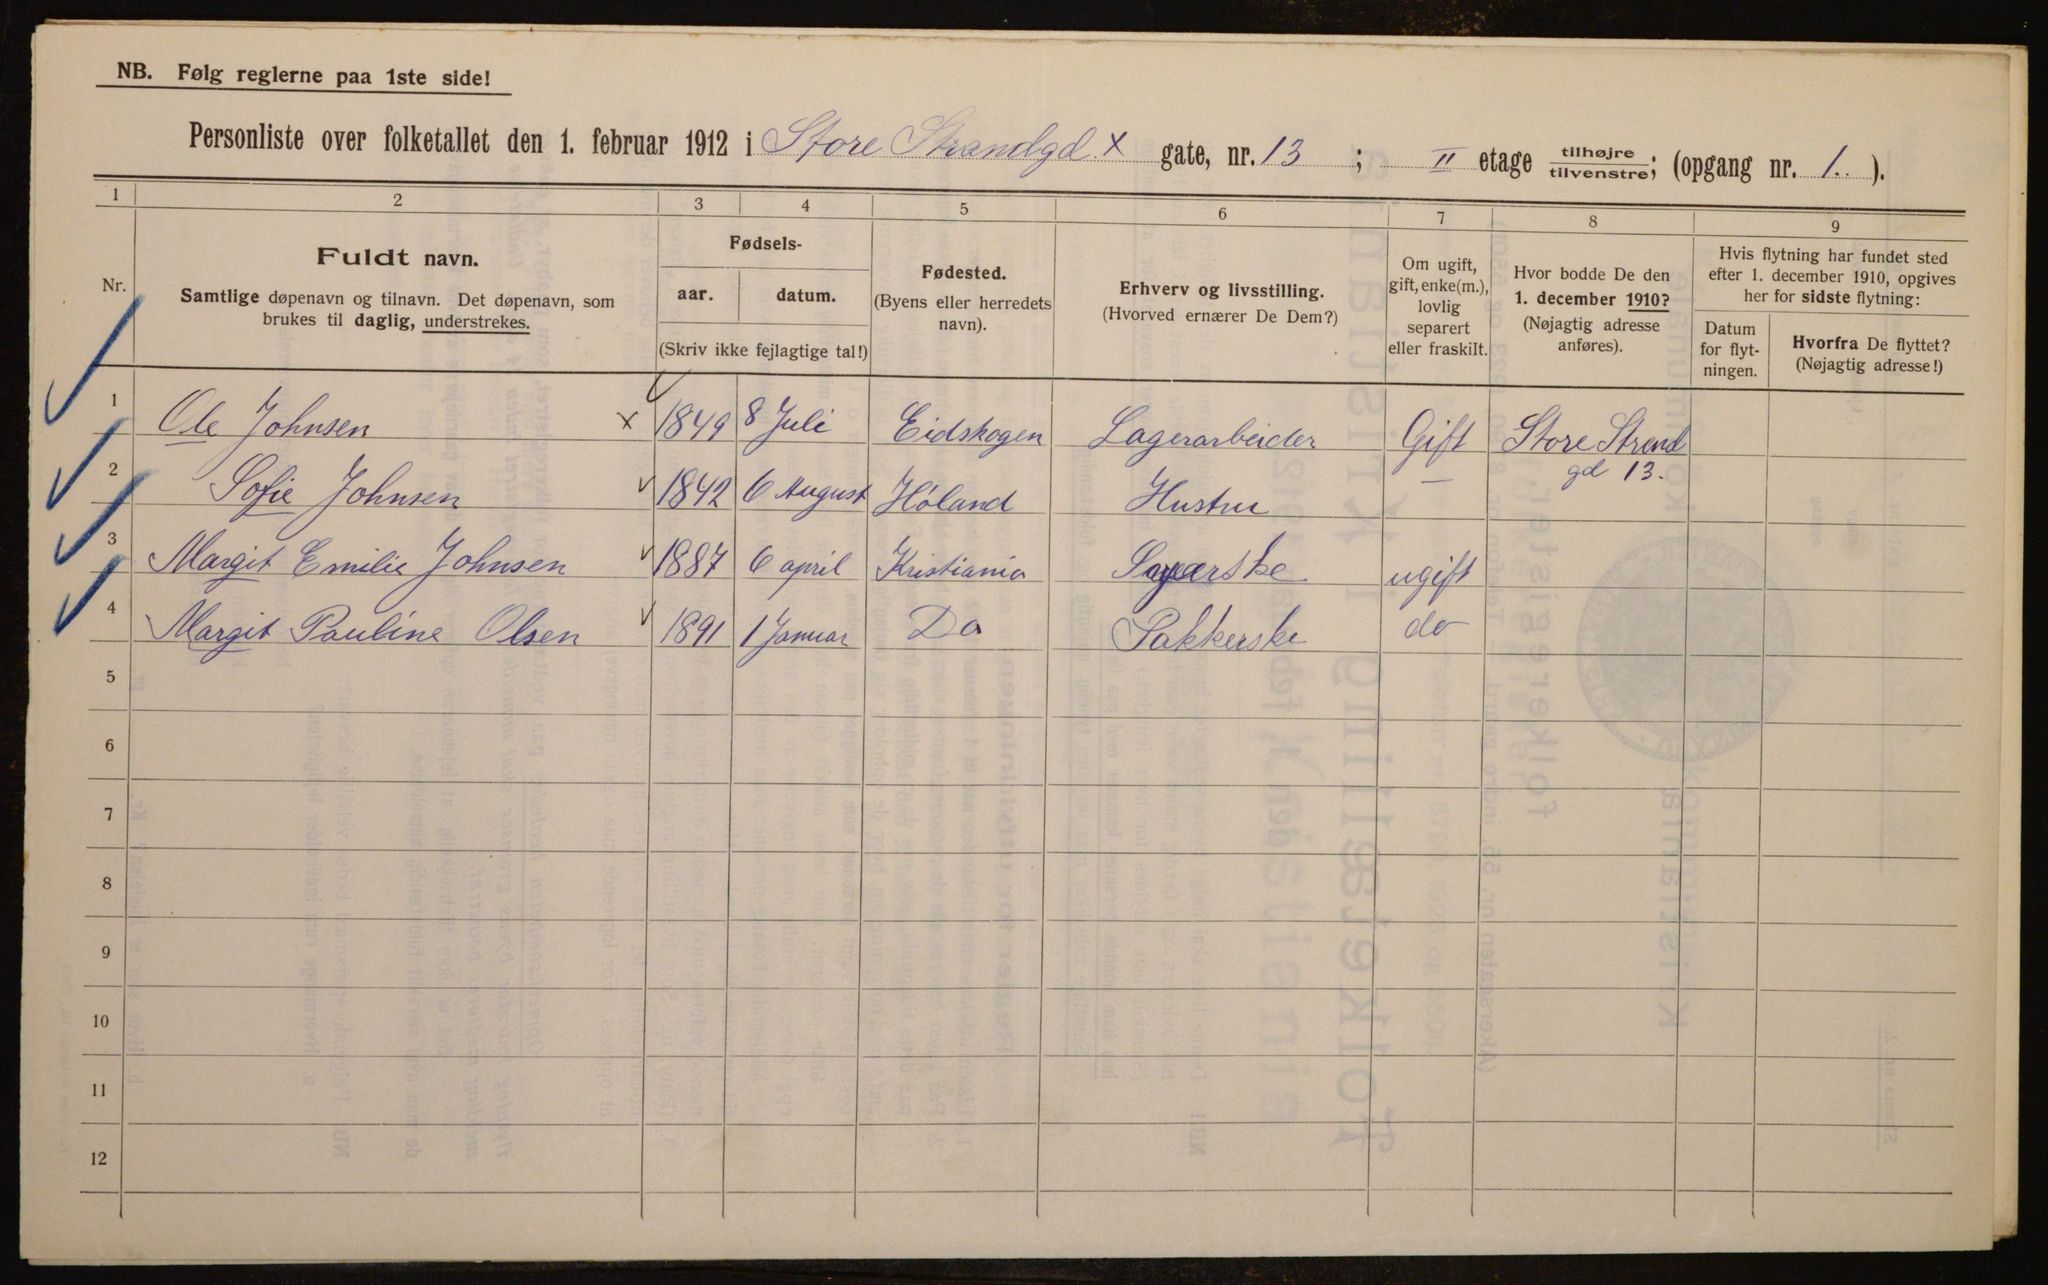 NB. Følg reglerne paa 1ste side!
Personliste over folketallet den 1. februar 1912 i Store Strandgd. x gate, nr. 13 ; II etage tilhøjre tilvenstre; (opgang nr. 1.. ).
1 2 3 4 5 6 7 8 9
Nr.
Fuldt navn.
Samtlige døpenavn og tilnavn. Det døpenavn, som
brukes til daglig, understrekes.
Fødsels-
aar. datum.
(Skriv ikke fejlagtige tal!)
Fødested.
(Byens eller herredets
navn).
Erhverv og livsstilling.
(Hvorved ernærer De Dem?)
Om ugift,
gift, enke(m.),
lovlig
separert
eller fraskilt.
Hvor bodde De den
1. december 1910?
(Nøjagtig adresse
anføres).
Hvis flytning har fundet sted
efter 1. december 1910, opgives
her for sidste flytning:
Datum
for flyt-
ningen.
Hvorfra De flyttet?
(Nøjagtig adresse!)
1 Ole Johnsen x 1849 8 Juli Eidskogen Lagerarbeider Gift Store Strand
gd 13.
2 Sofie Johnsen 1842 6 August Høland Hustru —
3 Margit Emilie Johnsen 1887 6 april Kristiania ugift
4 Margit Pauline Olsen 1891 1 Januar Do Pakkerske do
5
6
7
8
9
10
11
12